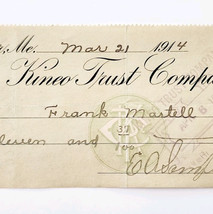 , Me. Mar 21 1914
Kineo Trust Compa
Frank Martell
leven and 37/100